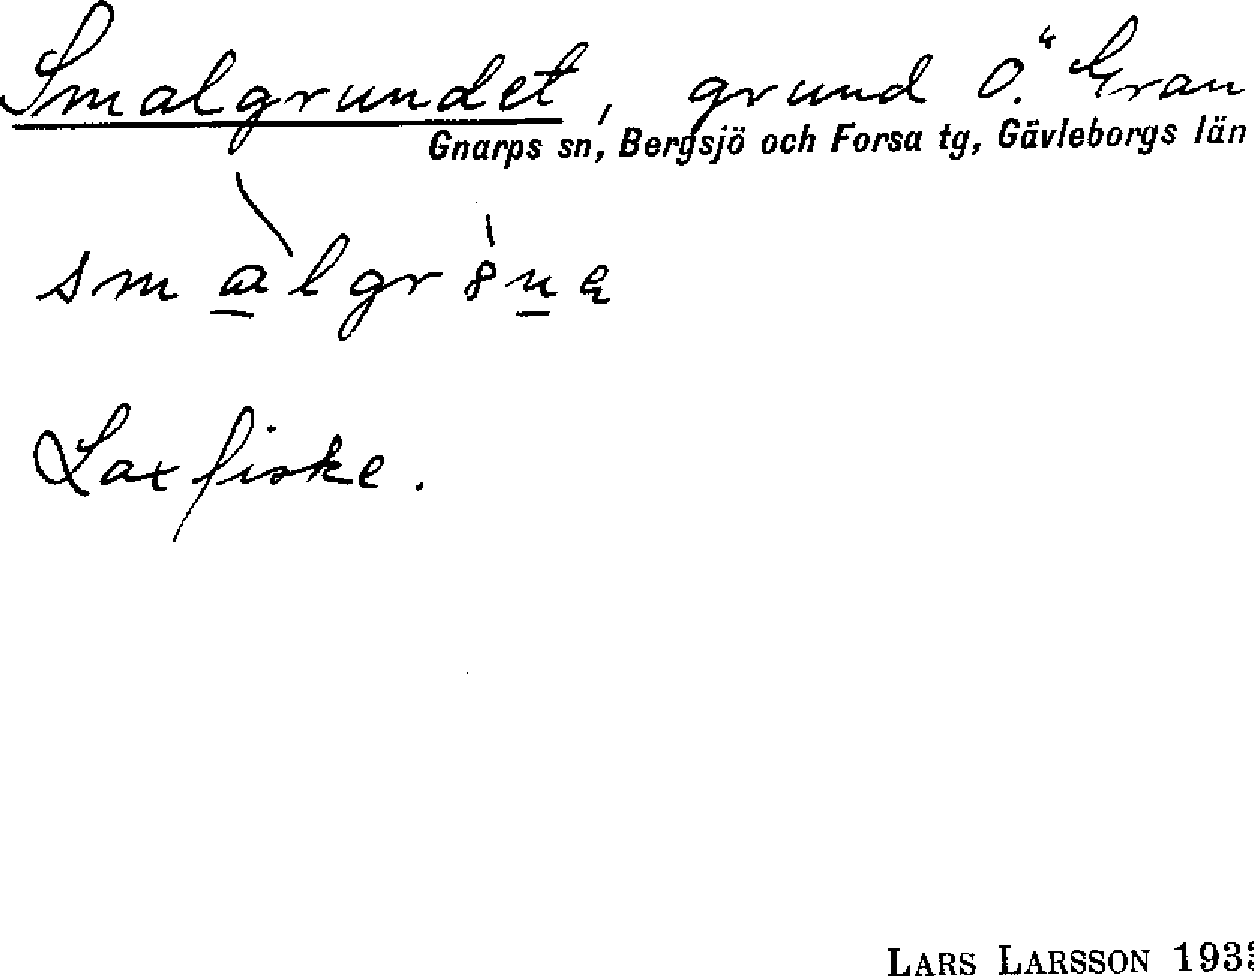 Smalgrundet, grund O. " Gran
Gnarps sn, Bergsjö och Forsa tg, Gävleborgs län
Laxfiske.
LARS LARSSON 193